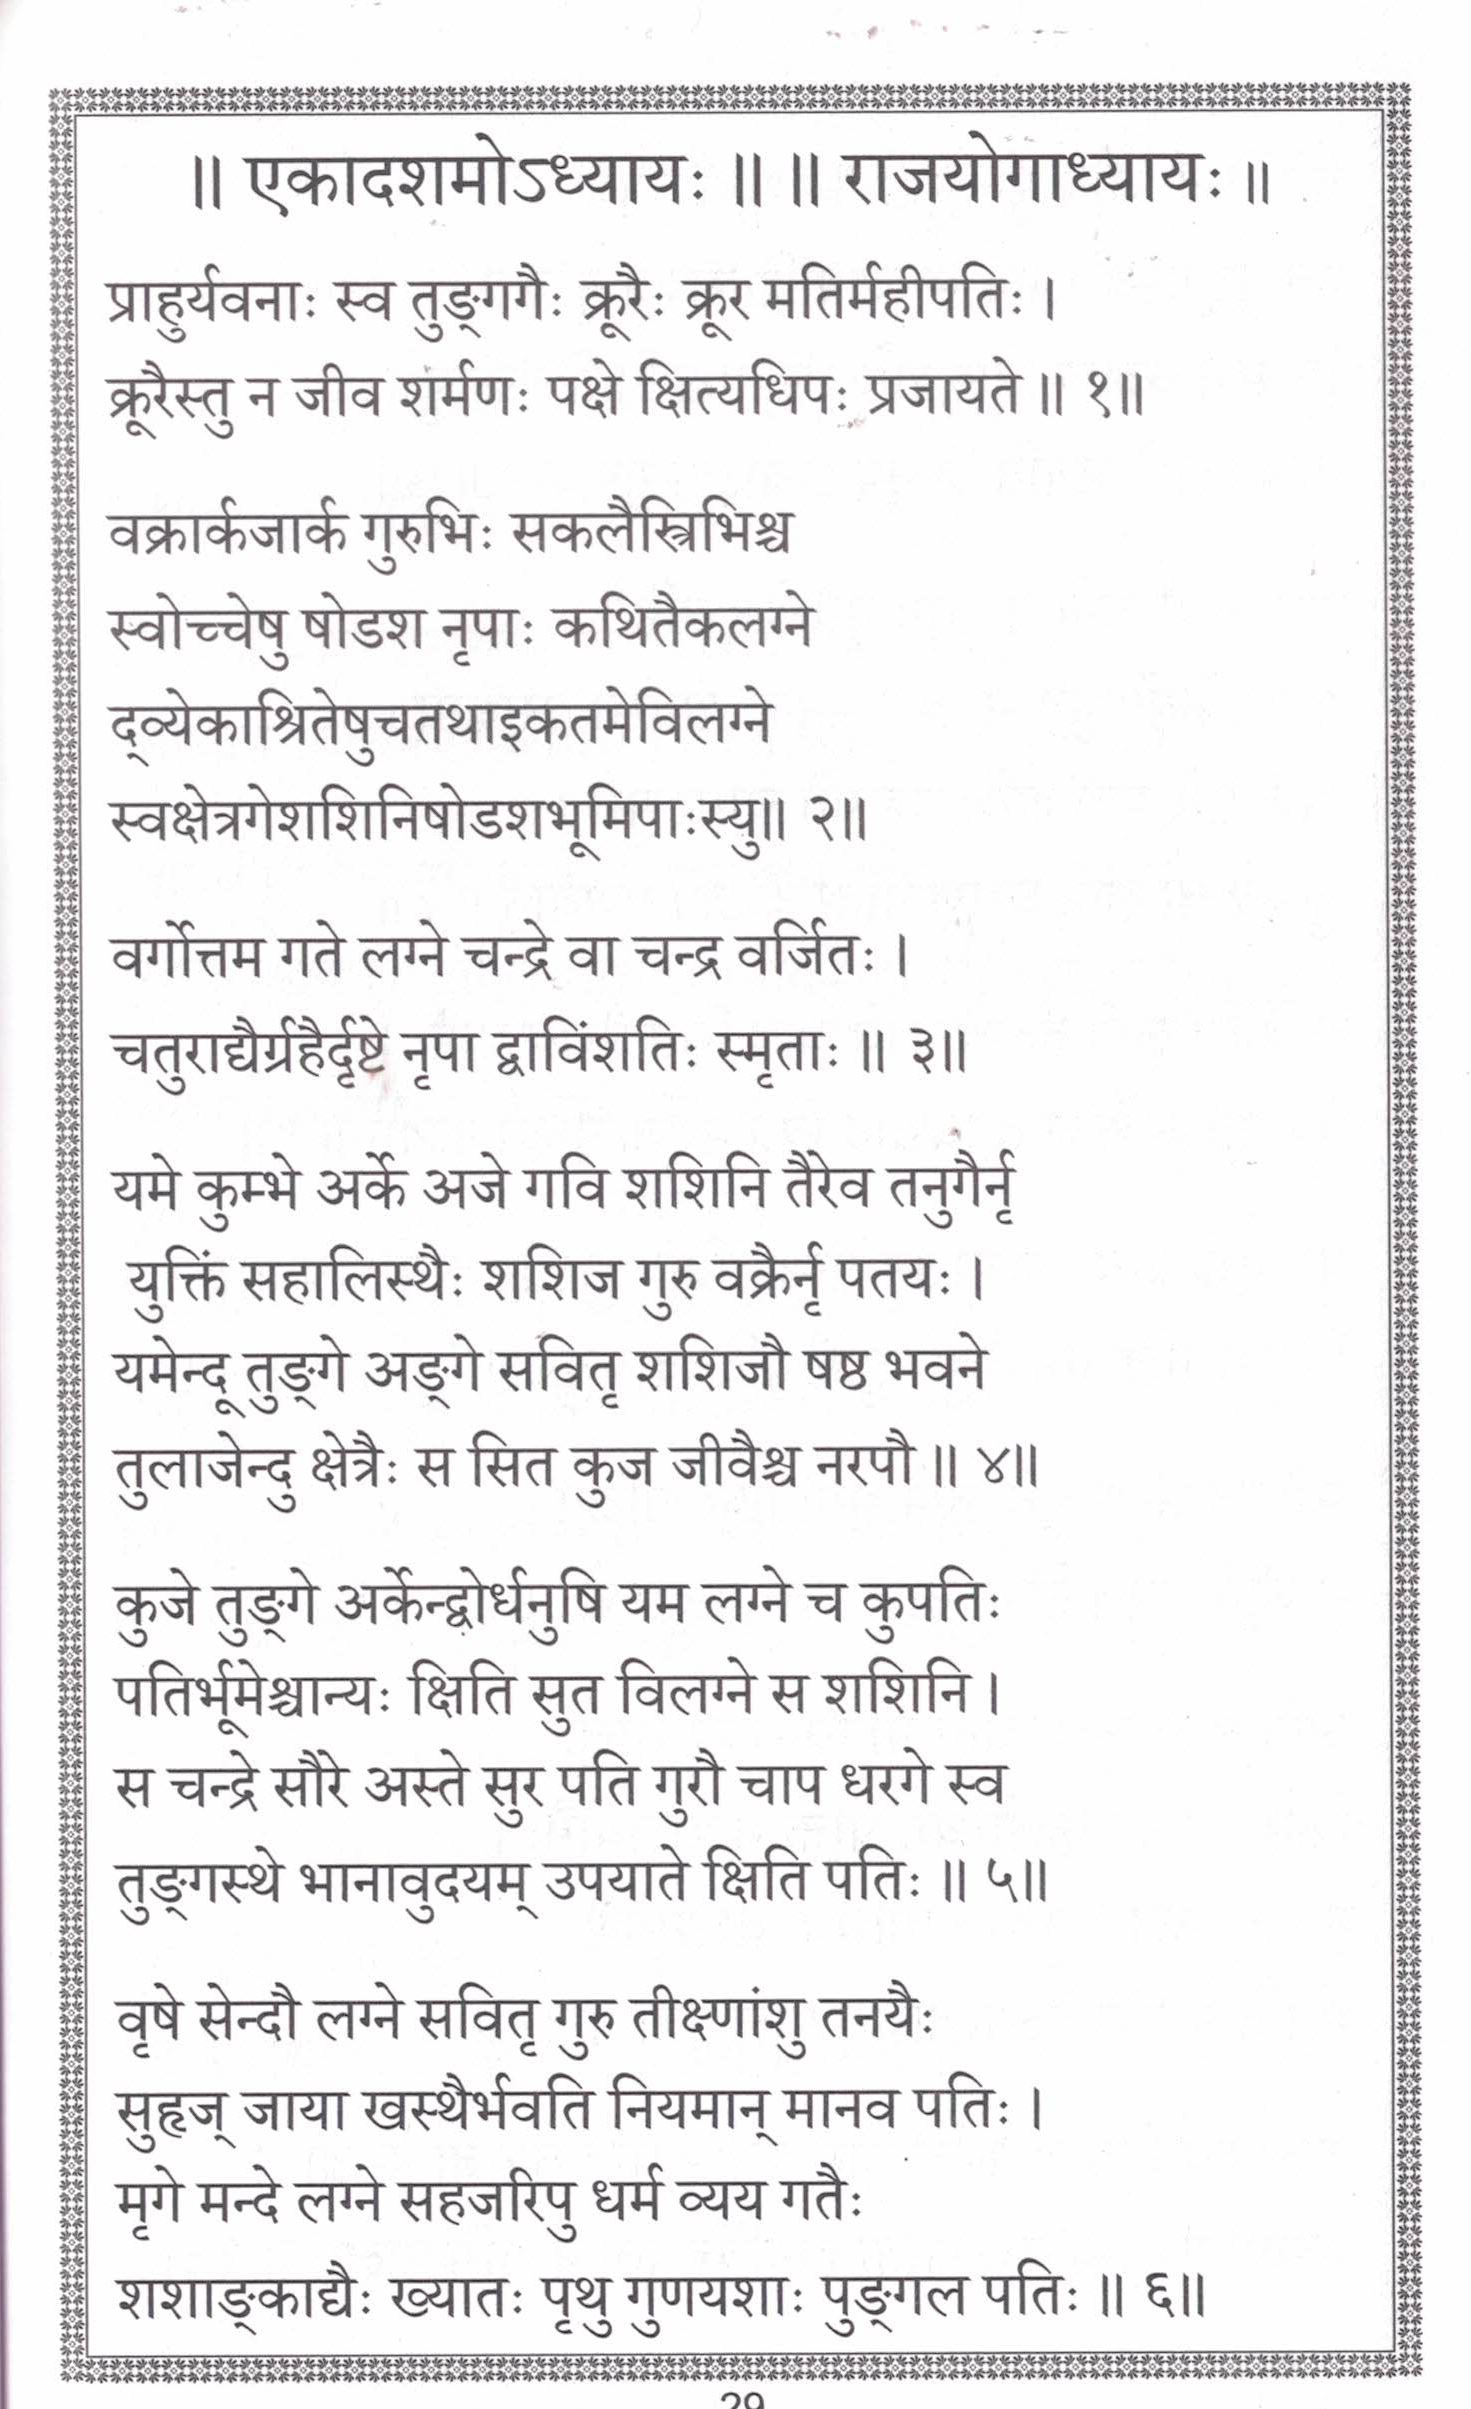 ॥ एकादशमोऽध्यायः ॥ ॥ राजयोगाध्यायः ॥
प्राहुर्यवनाः स्व तुङ्गगैः क्रूरैः क्रूर मतिर्महीपतिः ।
क्रूरैस्तु न जीव शर्मणः पक्षे क्षित्यधिपः प्रजायते ॥ १॥
वक्रार्कजार्क गुरुभिः सकलैस्त्रिभिश्च
स्वोच्चेषु षोडश नृपाः कथितैकलग्ने
द्व्येकाश्रितेषुचतथाइकतमेविलग्ने
स्वक्षेत्रगेशशिनिषोडशभूमिपाःस्यु॥ २॥
वर्गोत्तम गते लग्ने चन्द्रे वा चन्द्र वर्जितः ।
चतुराद्यैर्ग्रहैर्दृष्टे नृपा द्वाविंशतिः स्मृताः ॥ ३॥
यमे कुम्भे अर्के अजे गवि शशिनि तैरेव तनुगैर्नृ
युक्तिं सहालिस्थैः शशिज गुरु वक्रैर्नृ पतयः ।
यमेन्दू तुङ्गे अङ्गे सवितृ शशिजौ षष्ठ भवने
तुलाजेन्दु क्षेत्रैः स सित कुज जीवैश्च नरपौ ॥ ४॥
कुजे तुङ्गे अर्केन्द्वोर्धनुषि यम लग्ने च कुपतिः
पतिर्भूमेश्चान्यः क्षिति सुत विलग्ने स शशिनि ।
स चन्द्रे सौरे अस्ते सुर पति गुरौ चाप धरगे स्व
तुङ्गस्थे भानावुदयम् उपयाते क्षिति पतिः ॥ ५॥
वृषे सेन्दौ लग्ने सवितृ गुरु तीक्ष्णांशु तनयैः
सुहृज् जाया खस्थैर्भवति नियमान् मानव पतिः ।
मृगे मन्दे लग्ने सहजरिपु धर्म व्यय गतैः
शशाङ्काद्यैः ख्यातः पृथु गुणयशाः पुङ्गल पतिः ॥ ६॥